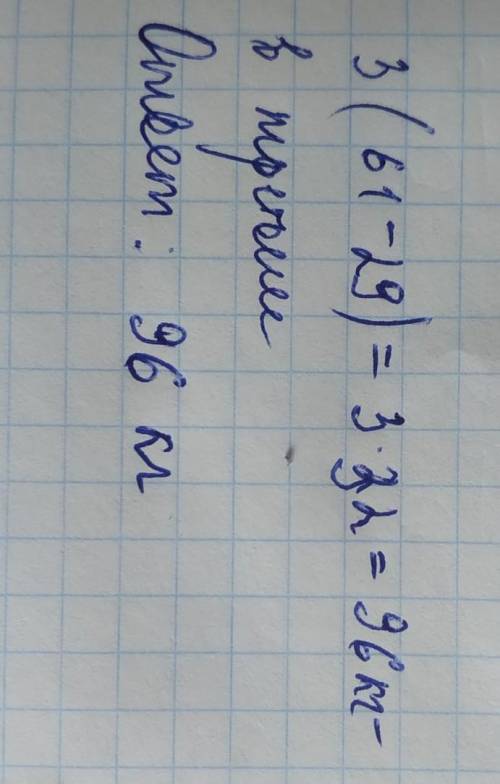 3(61-29)=3·32=96кг-
в третьем
Ответ: 96 кг